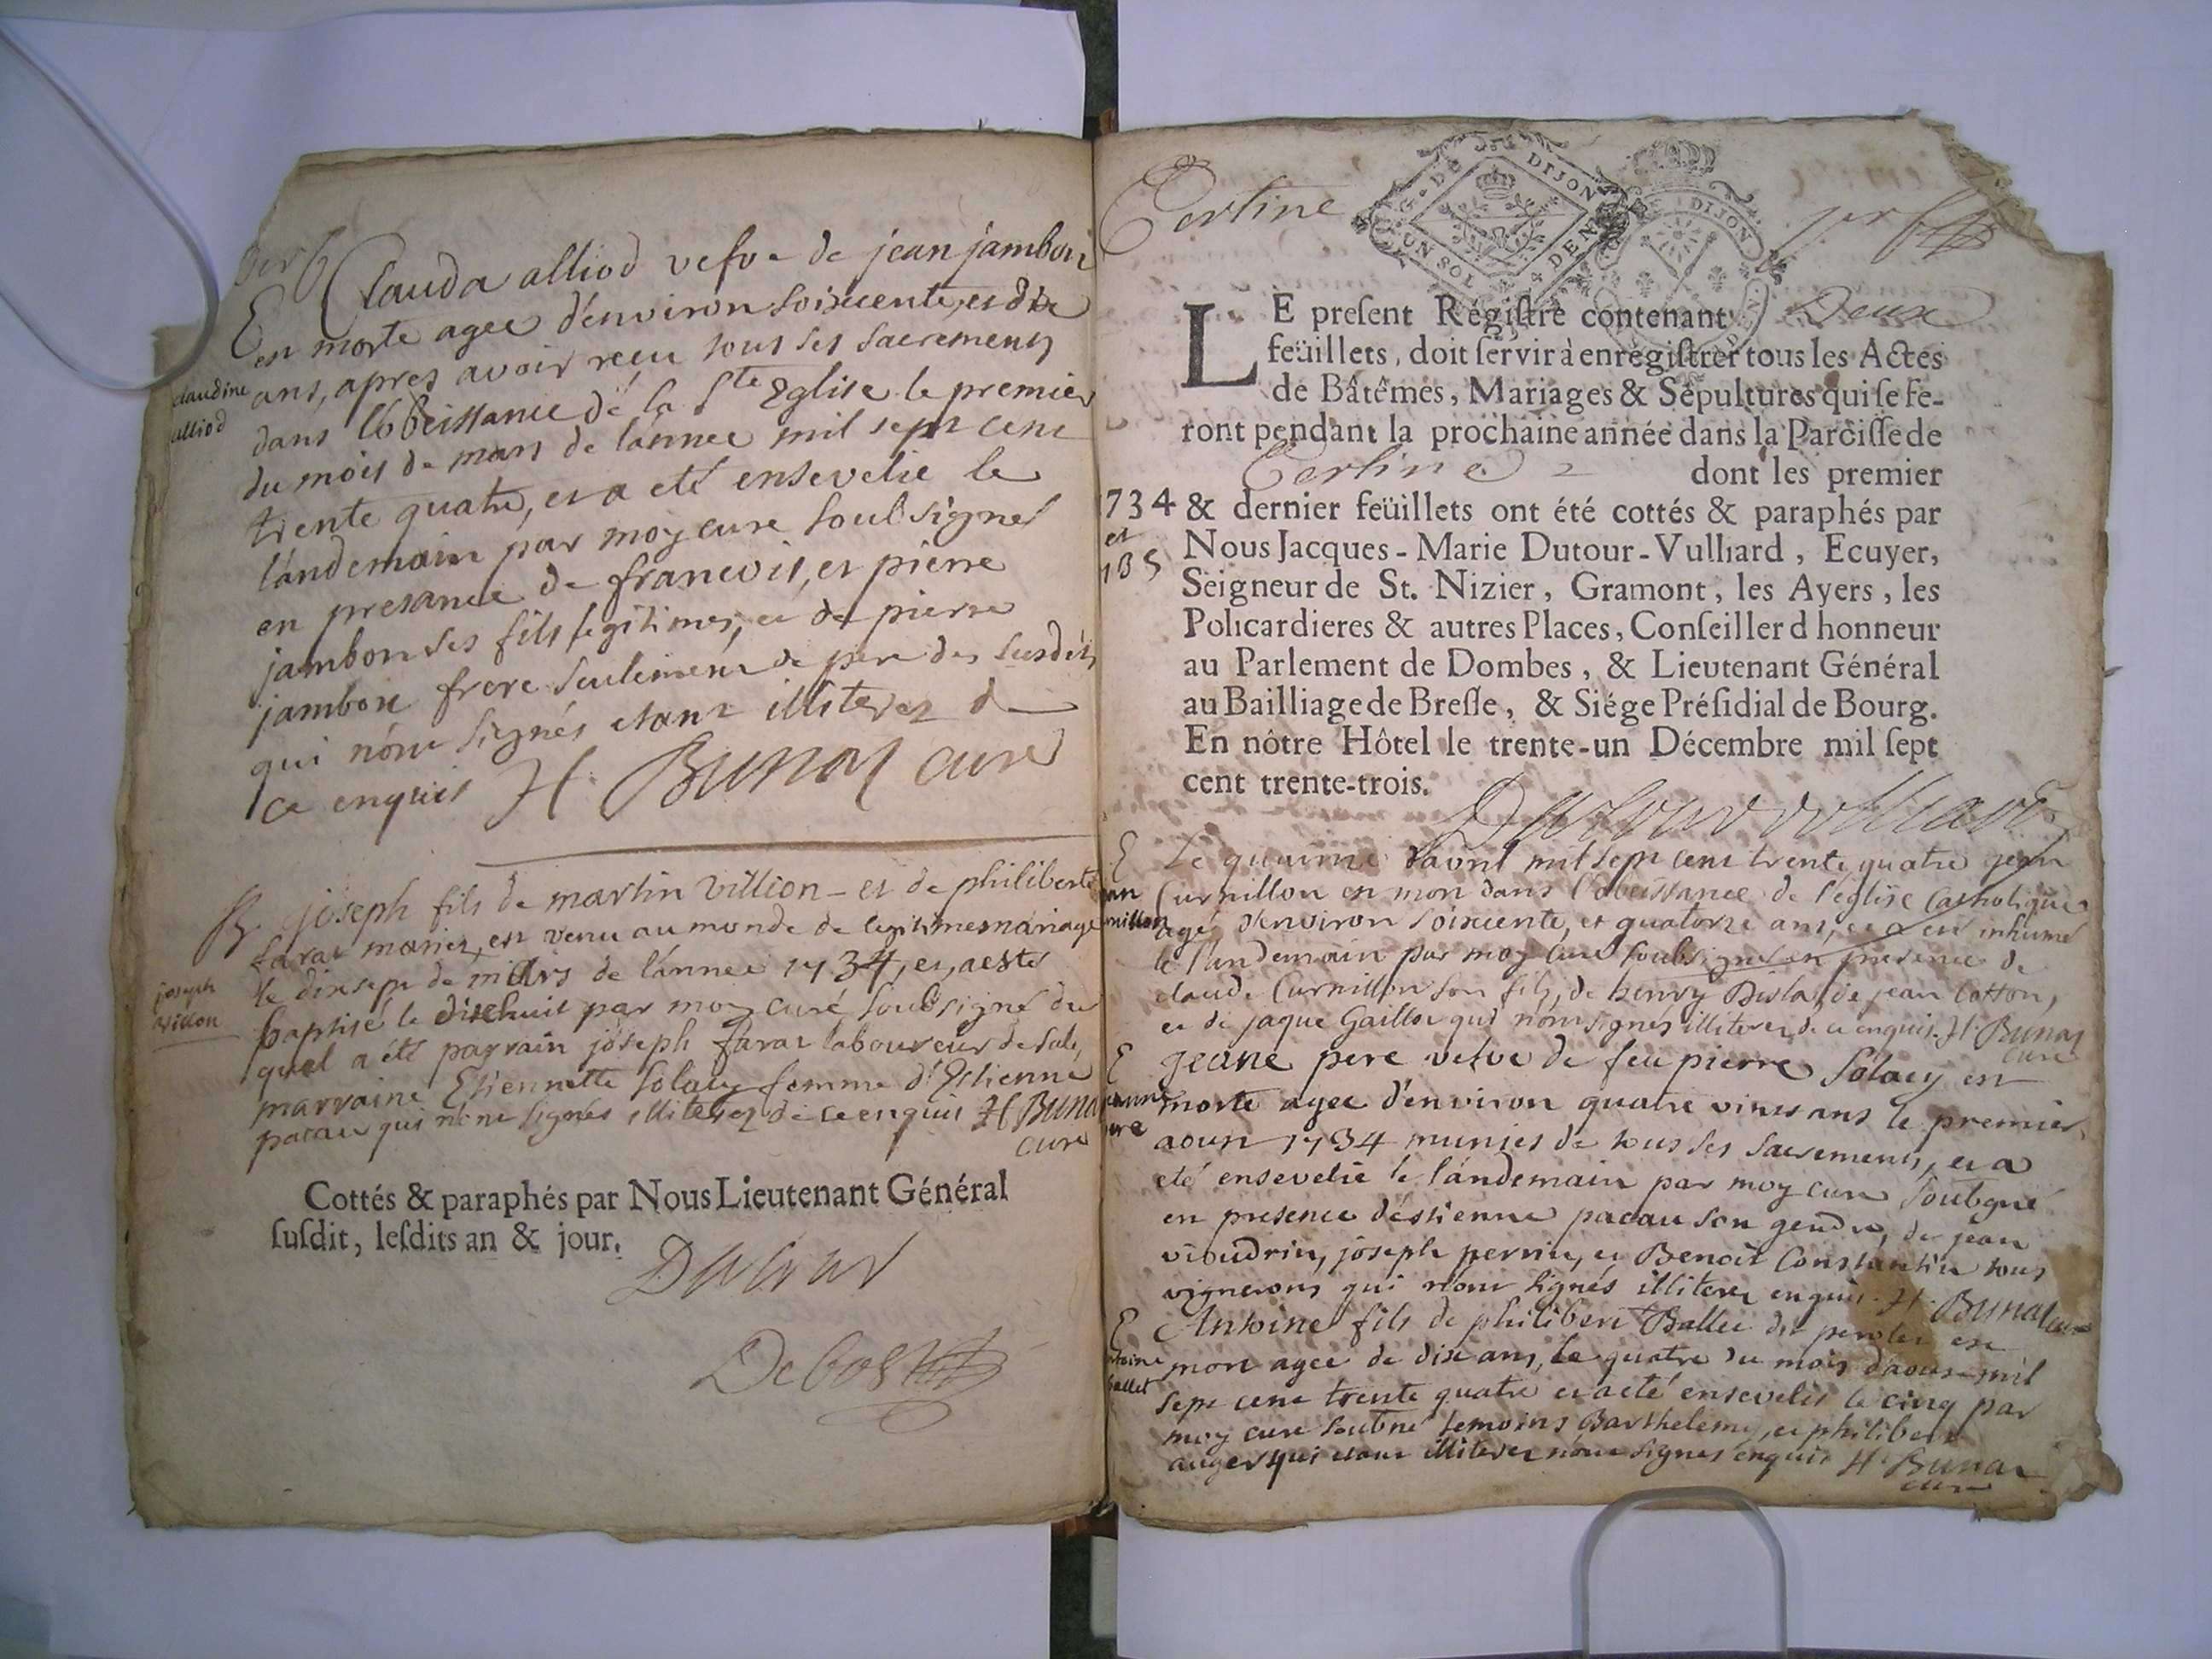 Clauda alliod vefve de jean jambon
E
est morte agee d'environ soixcente, et dix
claudine
alliod
ans, apres avoir receu tous ses sacrements
dans l'obeissance de la Ste Eglise le premier
du mois de mars de l'annee mil sept cent
trente quatre, et a eté ensevelie le
landemain par moy curé soubsigné
en presance de francois, et pierre
jambon ses fils legitimes, et de pierre
jambon frere seulement de pere des susdits
qui n'ont signés etant illiterez de
ce enquis H. Bunat curé
B. joseph fils de martin Villion - et de philiberte
farat mariez, est venu au monde de legitime mariage
joseph
villion
le dixsept de mars de l'annee 1734, et, a esté
baptisé le dixhuit par moy curé soubsigné du
quel a été parrain joseph farat laboureur de
marraine Etiennette Solacy femme d'Estienne
pacau qui n'ont signés illiterez de ce enquis H Bunat
curé
Cottés & paraphés par Nous Lieutenant Général
susdit, lesdits an & jour.
Dutour
Debost
Certine
G. DE DIJON
UN SOL 4 DEN
DIJON
LE present Régistre contenant Deux
feüillets, doit servir à enregistrer tous les Actes
de Bâtêmes, Mariages & Sépultures qui se fe-
ront pendant la prochaine année dans la Paroisse de
Certine dont les premier
1734
et
135
& dernier feüillets ont été cottés & paraphés par
Nous Jacques-Marie Dutour-Vulliard, Ecuyer,
Seigneur de St. Nizier, Gramont, les Ayers, les
Policardieres & autres Places, Conseiller d honneur
au Parlement de Dombes, & Lieutenant Général
au Bailliage de Bresse, & Siége Présidial de Bourg.
En nôtre Hôtel le trente-un Décembre mil sept
cent trente-trois.
Dutour vulliard
E Le d'avril mil sept cent trente quatre jean
Curnillon est mort dans l'obeissance de l'eglise Catholique
agé d'environ soixcente, et quatorze ans, et a eté inhumé
le landemain par moy curé soubsigné en presence de
claude Curnillon son fils, de henry de jean Cotton,
et de jaque Gaillot qui n'ont signés illiterez de ce enquis. H. Bunat
curé
E jeane pere vefve de feu pierre Solacy est
morte agee d'environ quatre vints ans le premier
aoust 1734 munies de tous ses sacrements, et a
eté ensevelie le landemain par moy curé soubsigné
en presence d'estienne pacau son gendre, de jean
vioudrin, joseph perrin, et Benoit Constantin tous
vignerons qui n'ont signés illiterez enquis. H. Bunat curé
E Antoine fils de philibert Ballet dit est
antoine
ballet
mort agee de dix ans, le quatre du mois d'aoust mil
sept cent trente quatre et a eté ensevelis le cinq par
moy curé temoins Barthelemy, et philibert
auger qui etant illiterez n'ont signés enquis H Bunat
curé